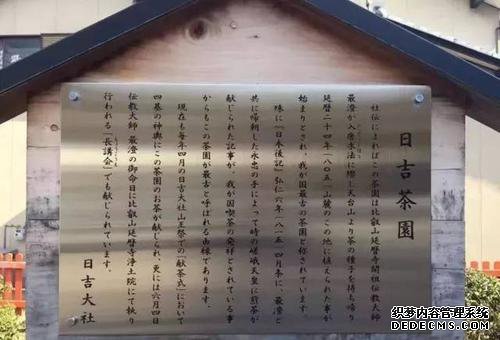 日吉茶園
社伝によればこの茶園は比叡山延暦寺開祖伝教大師
最澄が入唐求法に際し天台山より茶の種子を持ち帰り
延暦二十四年(八〇五)山麓のこの地に植えられた事が
始まりとされ、我が国最古の茶園と称されています。
殊に『日本後記』弘仁六年(八一五)四月条に、最澄と
共に帰朝した永忠の手によって時の嵯峨天皇に煎茶が
献じられた記事が、我が国喫茶の発祥とされている事
からもこの茶園が最古と呼ばれる由縁であります。
現在も毎年四月の日吉大社山王祭での「献茶式」において
四基の神輿にこの茶園のお茶が献じられ、更には六月四日
伝教大師 最澄の御命日に比叡山延暦寺浄土院にて執り
行われる「長講会」でも献じられています。
日吉大社
织梦内容管理系统
DEDECMS.COM